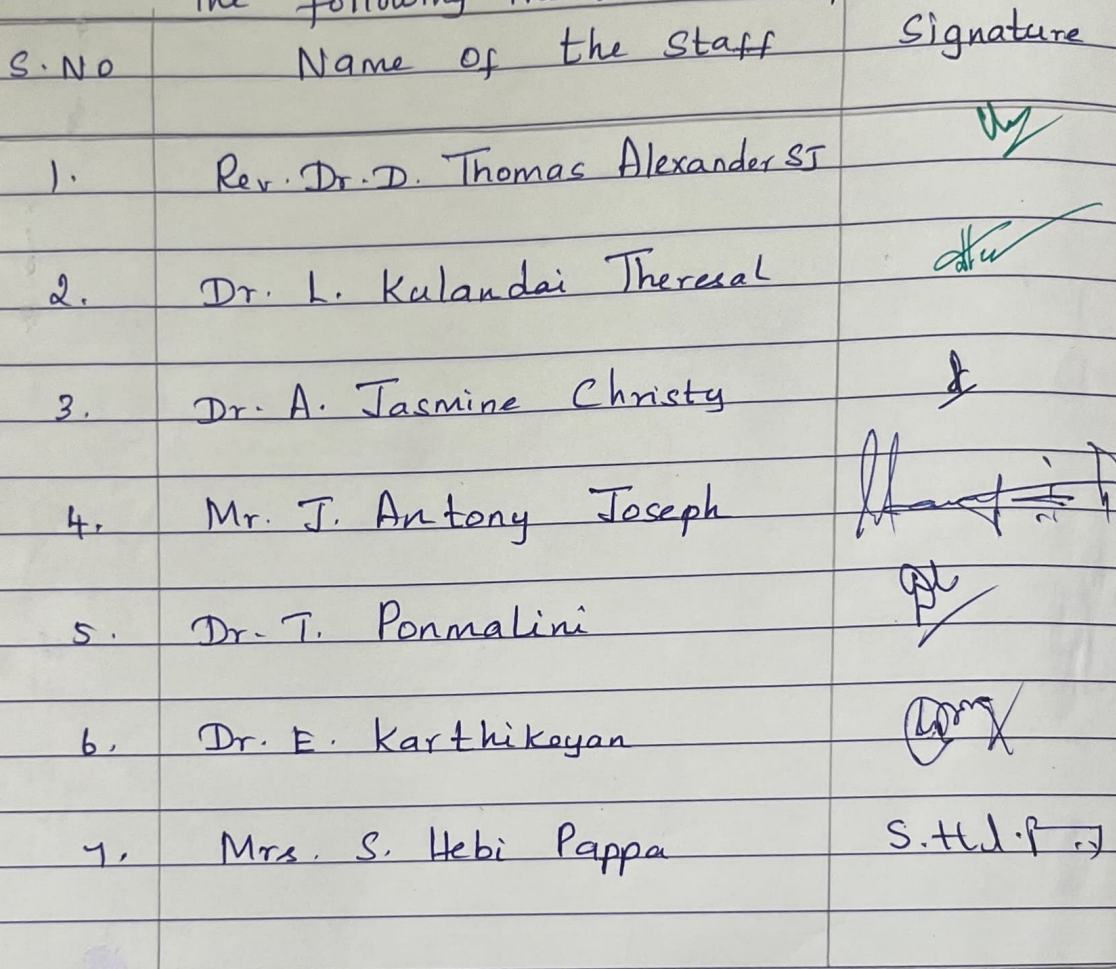 The following
S.No Name of the Staff Signature
1. Rev. Dr. D. Thomas Alexander SJ
2. Dr. L. Kulandai Theresal
3. Dr. A. Jasmine Christy
4. Mr. J. Antony Joseph
5. Dr. T. Ponmalini
6. Dr. E. Karthikeyan
7. Mrs. S. Hebi Pappa